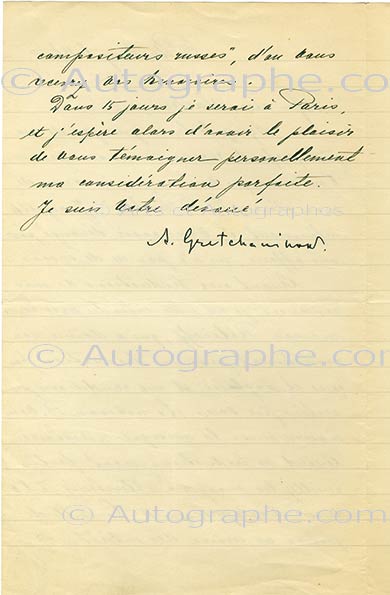 compositeurs russes", d'où vous
vos honoraires.
Dans 15 jours je serai à Paris,
et j'espère alors d'avoir le plaisir
de vous témoigner personellement
ma considération parfaite.
Je suis votre dévoué
A. Gretchaninow.
© Autographe.com
© Autographe.com
© Autographe.com